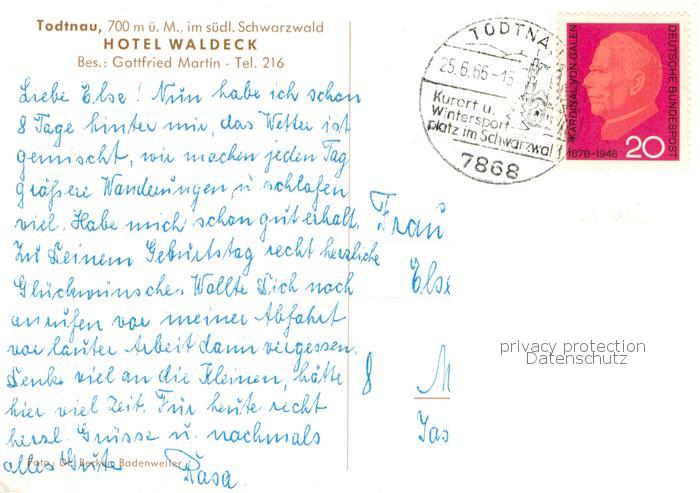 Todtnau, 700 m ü. M., im südl. Schwarzwald
HOTEL WALDECK
Bes.: Gottfried Martin · Tel. 216
Liebe Else! Nun habe ich schon
8 Tage hinter mir, das Wetter ist
gemischt, wir machen jeden Tag
größere Wanderungen, u schlafen
viel. Habe mich schon gut erholt.
Zu Deinem Geburtstag recht herzliche
Glückwünsche. Wollte Dich noch
anrufen vor meiner Abfahrt
vor lauter Arbeit dann vergessen.
Denke viel an die Kleinen, hätte
hier viel Zeit. Für heute recht
herzl. Grüsse u. nochmals
alles Gute Rosa.
Foto: Dr. Becker, Badenweiler
TODTNA
25.6.66-15
Kurort u.
Wintersport-
platz im Schwarzwal
7868
KARDINAL VON GALEN
DEUTSCHE BUNDESPOST
1878-1946
20
Frau
Else
8 M
privacy protection
Datenschutz